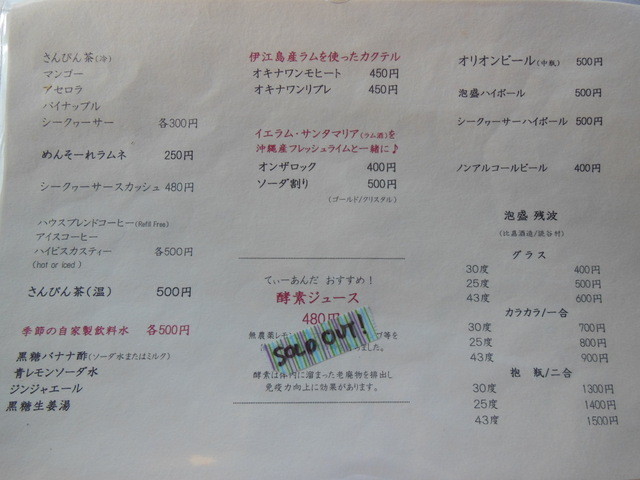 さんぴん茶(冷)
マンゴー
アセロラ
パイナップル
シークヮーサー 各300円
めんそーれラムネ 250円
シークヮーサースカッシュ 480円
ハウスブレンドコーヒー(Refill Free)
アイスコーヒー
ハイビスカスティー 各500円
(hot or iced )
さんぴん茶(温) 500円
季節の自家製飲料水 各500円
黒糖バナナ酢(ソーダ水またはミルク)
青レモンソーダ水
ジンジャエール
黒糖生姜湯
伊江島産ラムを使ったカクテル
オキナワンモヒート 450円
オキナワンリブレ 450円
イエラム・サンタマリア(ラム酒)を
沖縄産フレッシュライムと一緒に♪
オンザロック 400円
ソーダ割り 500円
(ゴールド/クリスタル)
てぃーあんだ おすすめ!
酵素ジュース
480円
無農薬レモン
SOLD OUT!
酵素は体内に溜まった老廃物を排出し
免疫力向上に効果があります。
オリオンビール(中瓶) 500円
泡盛ハイボール 500円
シークヮーサーハイボール 500円
ノンアルコールビール 400円
泡盛 残波
(比嘉酒造/読谷村)
グラス
30度 400円
25度 500円
43度 600円
カラカラ/一合
30度 700円
25度 800円
43度 900円
抱 瓶/二合
30度 1300円
25度 1400円
43度 1500円